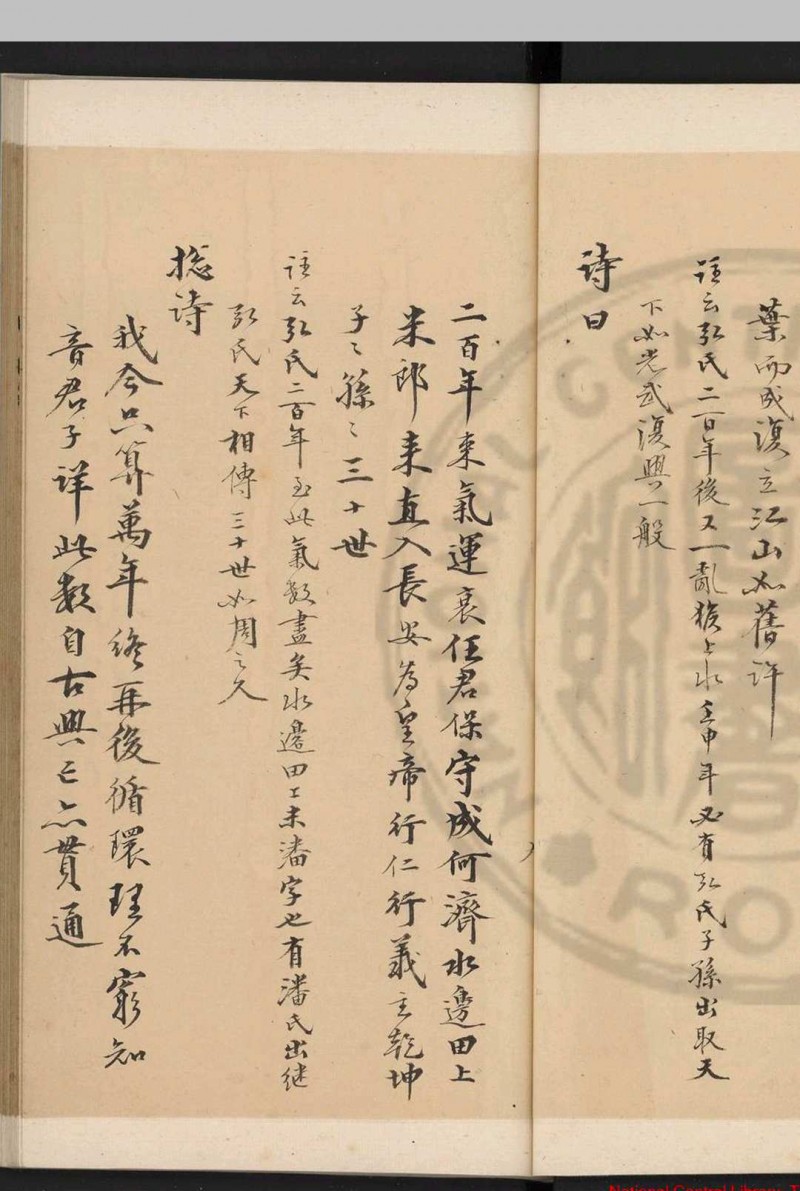 葉而成復立江山如舊許
註云弘氏二百年後又一亂猴上水壬申年必有弘氏子孫出取天
下如光武復興一般
詩曰
二百年來氣運衰任君保守成何濟水邊田上
米郎來直入長安為皇帝行仁行義主乾坤
子〻孫〻三十世
註云弘氏二百年至此氣数盡矣水邊田上未潘字也有潘氏出継
弘氏天下相傳三十世如周之久
捴詩
我今只算萬年終再後循環理不窮知
音君子詳此数自古興亡亦貫通
National Central Library, T